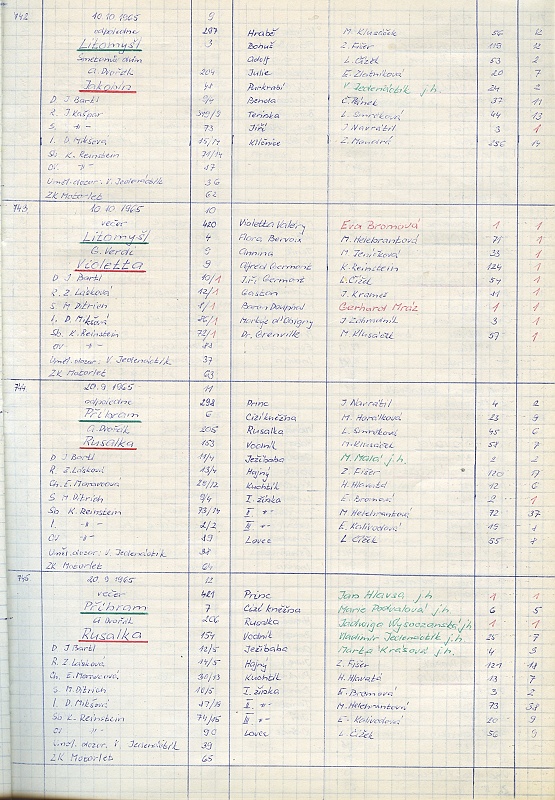 742 10.10.1965 9
odpoledne 297 Hrabě M. Klusáček 56 12
Litomyšl 3 Bohuš Z. Fišer 119 12
Smetanův dům Adolf L. Čížek 53 2
A. Dvořák 204 Julie E. Zletníková 20 7
Jakobín 48 Purkrabí V. Jedenáctík j.h. 24 2
D J. Bartl 9/4 Benda 37 11
R. J. Kašpar Terinka L. Šimreková 44 13
S. -"- 73 Jiří J. Navrátil 3 1
I. D. Mikšová 15/14 Klíčnice Z. Mandná 256 14
Sb K. Reinstein 71/14
Or -"- 17
Uměl. dozor: V. Jedenáctík 36
ZK Motorlet 62
743 10.10.1965 10
večer 420 Violetta Valéry Eva Bromová 1 1
Litomyšl 4 Flora Bervoix M. Helebrantová 71 1
G. Verdi 5 Annina M. Teničková 33 1
Violetta 9 Alfred Germont K. Reinstein 124 1
D J. Bartl 10/1 J. F. Germont L. Čížek 54 1
R. Z. Lásková 12/1 Gaston J. Krames 11 1
S M. Ditrich 1/1 Baron Douphol Gerhard Mráz 1 1
I. D. Mikšová 26/1 Markýz d'Obigny J. Zahradník 3 1
Sb. K. Reinstein 72/1 Dr. Grenville M. Klusáček 57 1
Or -"- 88
Uměl. dozor: V. Jedenáctík 37
ZK Motorlet 63
744 20.9.1965 11
odpoledne 298 Princ J. Navrátil 4 2
Příbram 6 Cizí kněžna M. Horálková 23 9
A. Dvořák 205 Rusalka L. Šimreková 45 6
Rusalka 153 Vodník M. Klusáček 58 7
D J. Bartl 11/4 Ježibaba M. Malá j.h. 2 2
R Z. Lásková 13/4 Hajný Z. Fišer 120 17
Ch. E. Moravcová 29/12 Kuchtík H. Hlavatá 12 6
S M. Ditrich 9/4 I. žínka E. Bromová 2 1
Sb K. Reinstein 73/14 II -"- M. Helebrantová 72 37
I. -"- 2/2 III -"- E. Kalivodová 19 8
Or -"- 89 Lovec L. Čížek 55 8
Uměl. dozor: V. Jedenáctík 38
ZK Motorlet 64
745 20.9.1965 12
večer 421 Princ Jan Hlavsa j.h. 1 1
Příbram 7 Cizí kněžna Marie Podvalová j.h. 6 5
A Dvořák 206 Rusalka Jadwiga Wysoczanská j.h. 1 1
Rusalka 154 Vodník Vladimír Jedenáctík j.h. 25 7
D J. Bartl 12/5 Ježibaba Marta Krásová j.h. 4 3
R. Z. Lásková 14/5 Hajný Z. Fišer 121 18
Ch. E. Moravcová 30/13 Kuchtík H. Hlavatá 13 7
S M. Ditrich 10/5 I. žínka E. Bromová 3 2
I. D. Mikšová 17/15 II -"- M. Helebrantová 73 38
Sb K. Reinstein 74/15 III -"- E. Kalivodová 20 9
Or -"- 90 Lovec L. Čížek 56 9
Uměl. dozor: V. Jedenáctík 39
ZK Motorlet 65